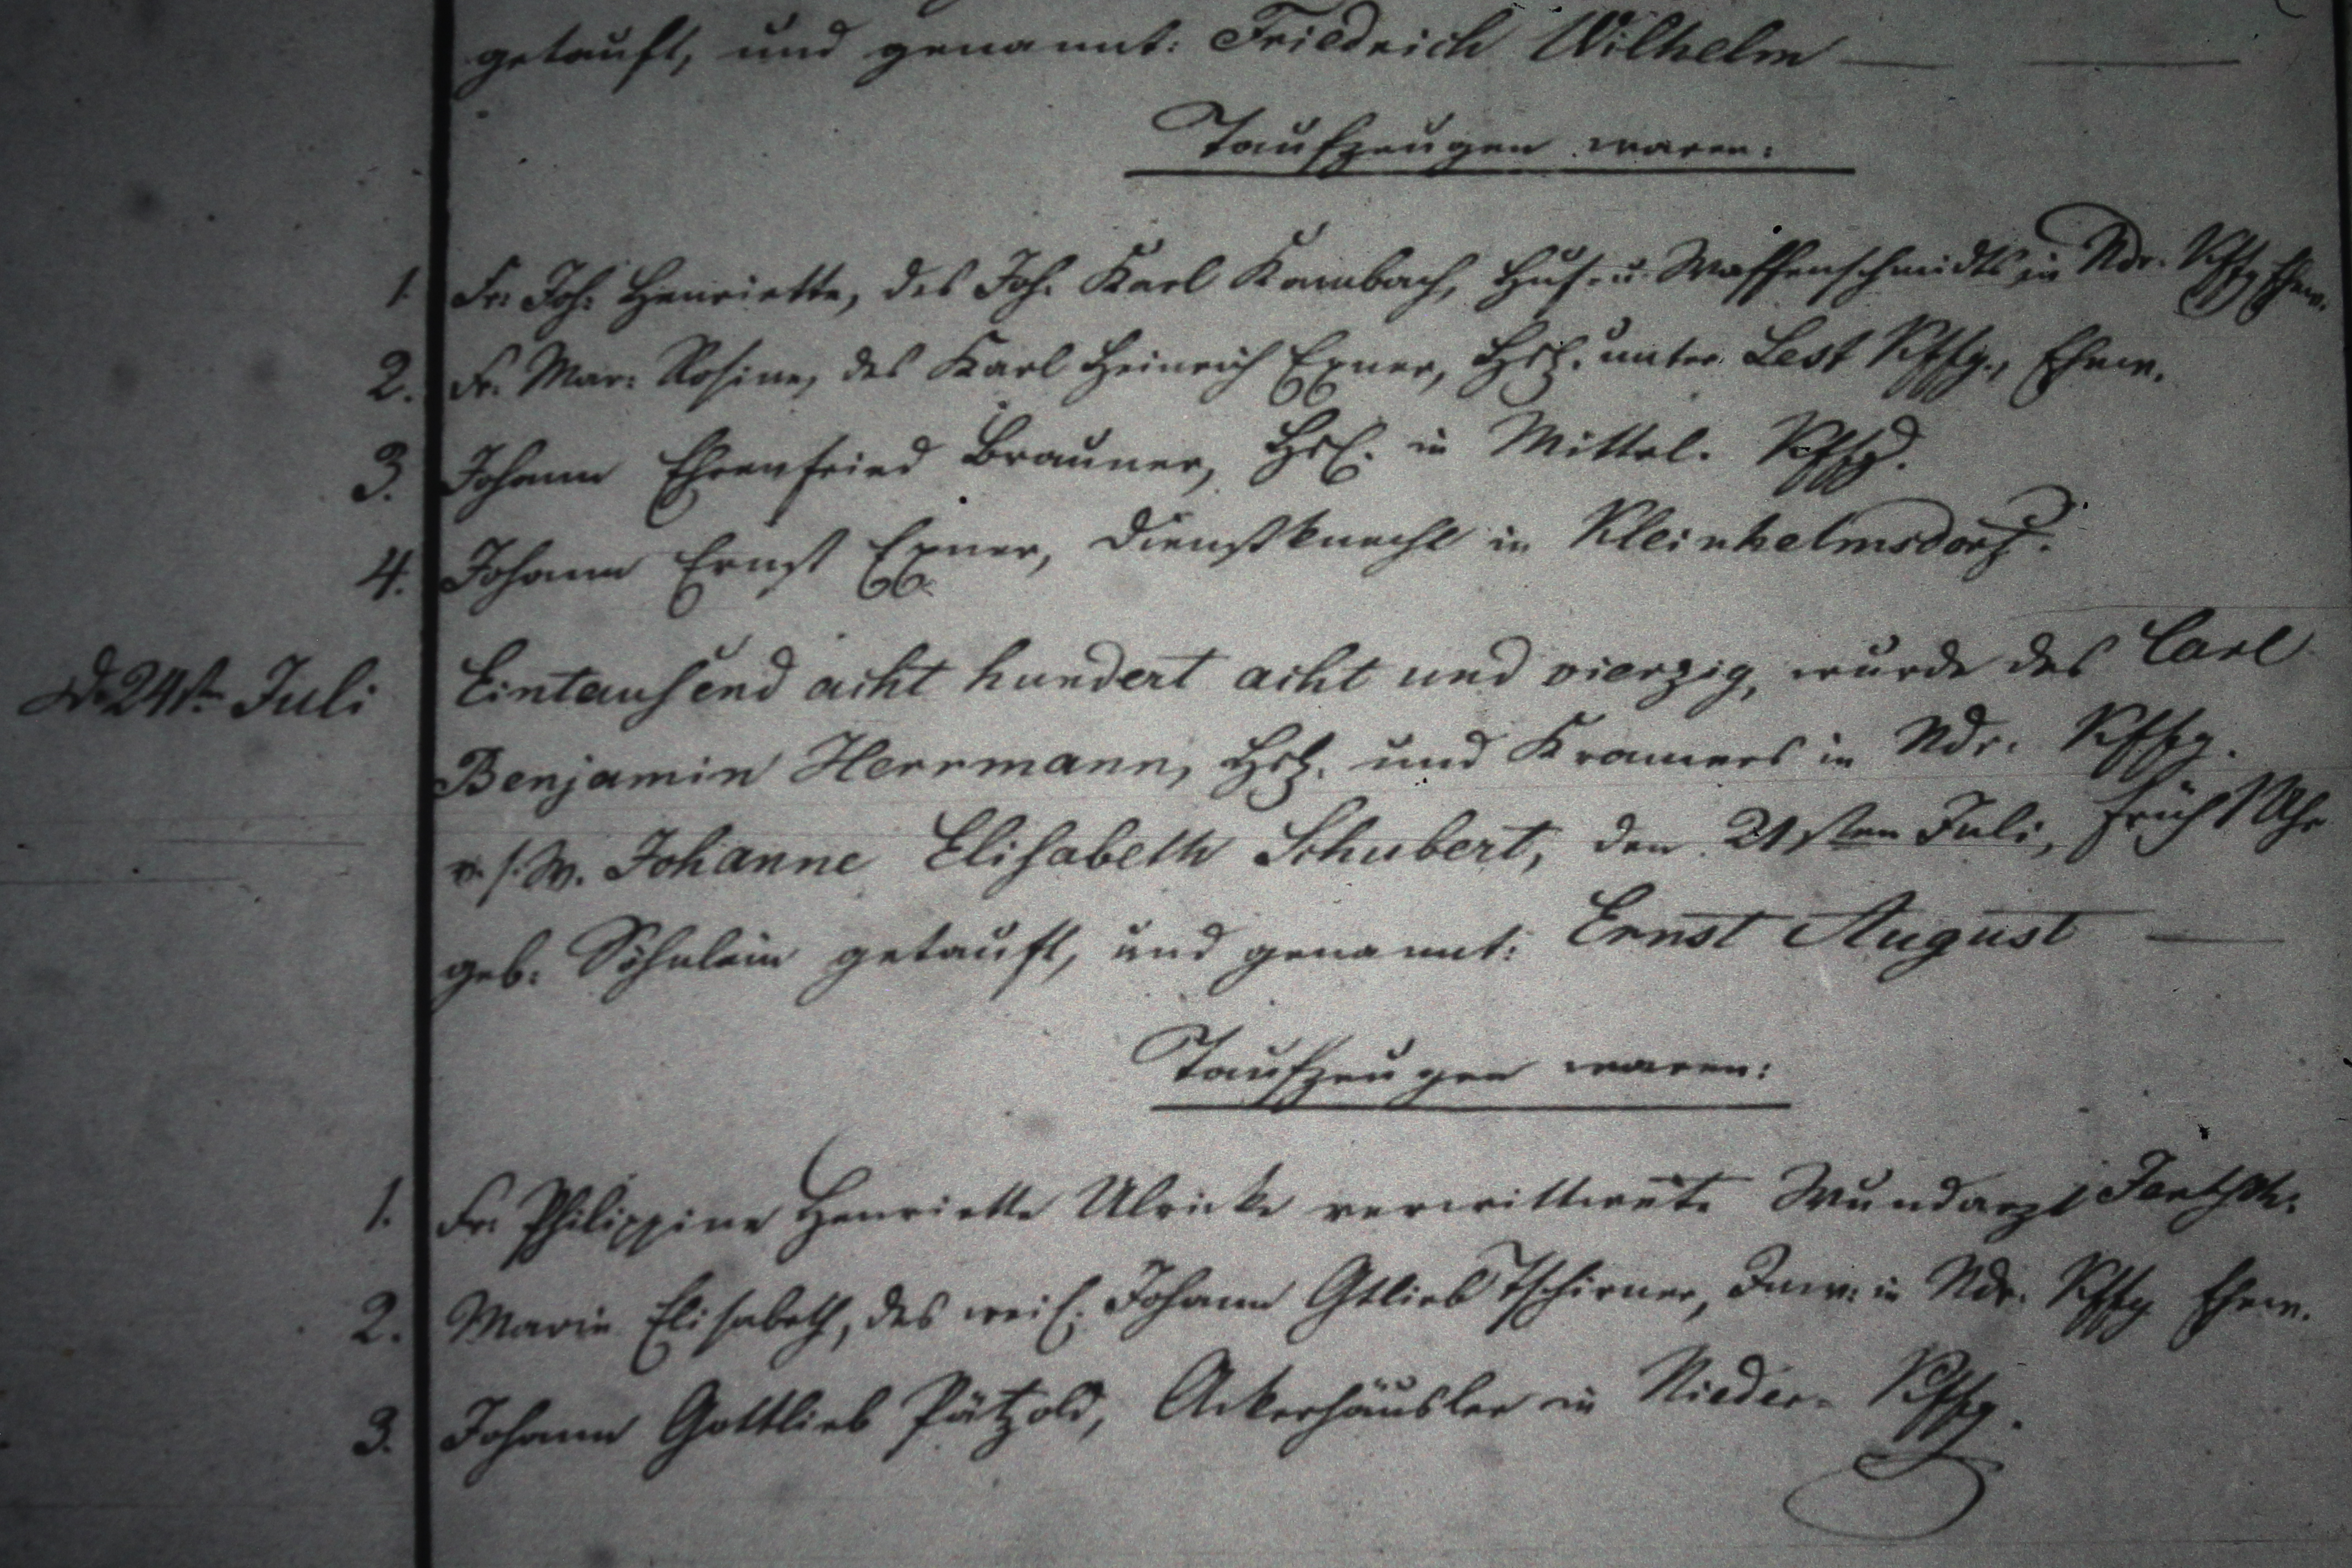 getauft, und genannt: Friedrich Wilhelm
Taufzeugen waren:
1. Fr. Joh: Henriette, des Joh. Karl Kambach, Huf- u. Waffenschmidts in Ndr. Kffg. Ehew.
2. Fr. Mar: Rosine, des Karl Heinrich Exner, Hsl. unter Lest Kffg., Ehew.
3. Johann Ehrenfried Brauner, Hsl. in Mittel. Kffg.
4. Johann Ernst Exner, Dienstknecht in Kleinhelmsdorf.
D. 24st. Juli Eintausend acht hundert acht und vierzig, wurde des Carl
Benjamin Herrmann, Hsl. und Kramers in Ndr. Kffg.
v. s. W. Johanne Elisabeth Schubert, den 21sten Juli, früh 1 Uhr
geb: Söhnlein getauft, und genannt: Ernst August
Taufzeugen waren:
1. Fr. Philippine Henriette Ulricke verwittwete Wundarzt
2. Marie Elisabeth, des weil. Johann Gtlieb Tschirner, Inw: in Ndr. Kffg. Ehew.
3. Johann Gottlieb Pätzold, Ackerhäusler in Nieder- Kffg.